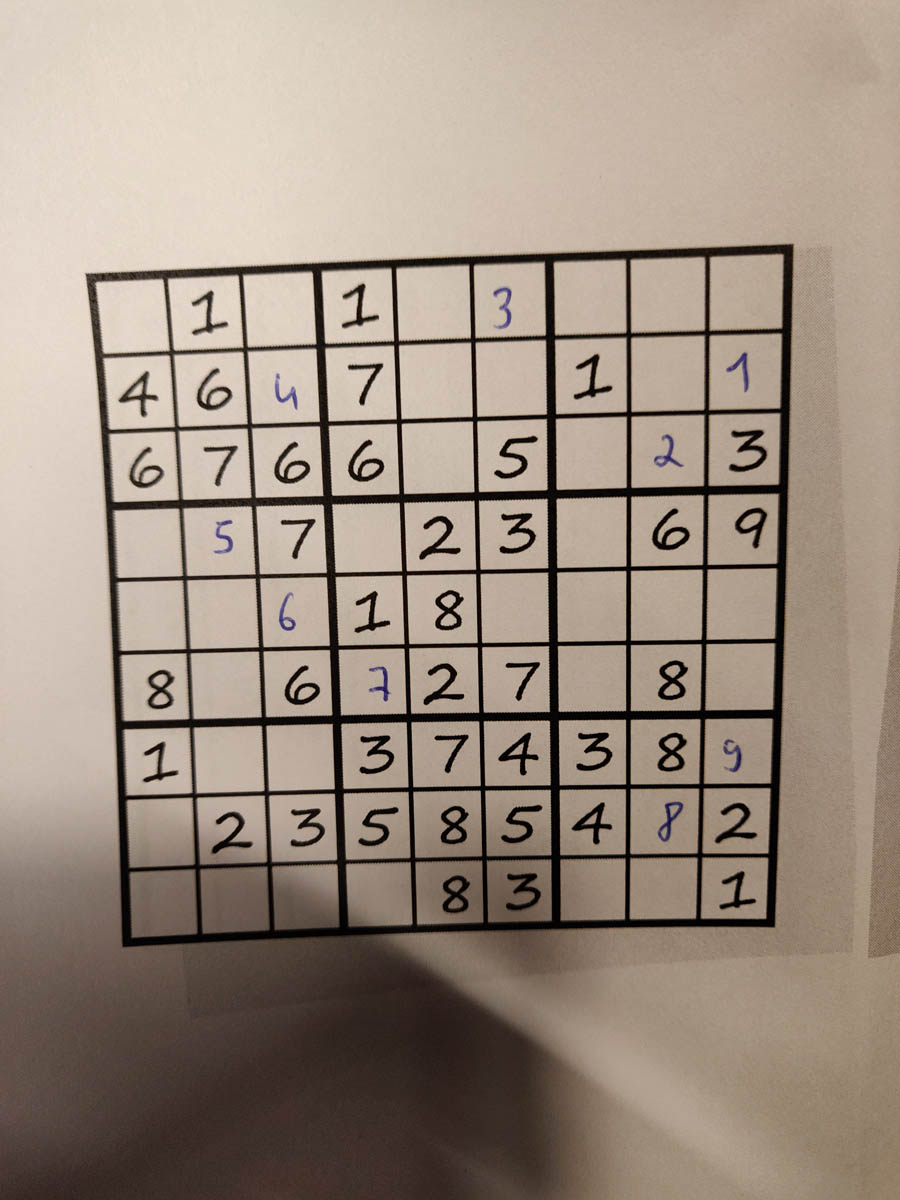 1 1 3
4 6 4 7 1 1
6 7 6 6 5 2 3
5 7 2 3 6 9
6 1 8
8 6 7 2 7 8
1 3 7 4 3 8 9
2 3 5 8 5 4 8 2
8 3 1